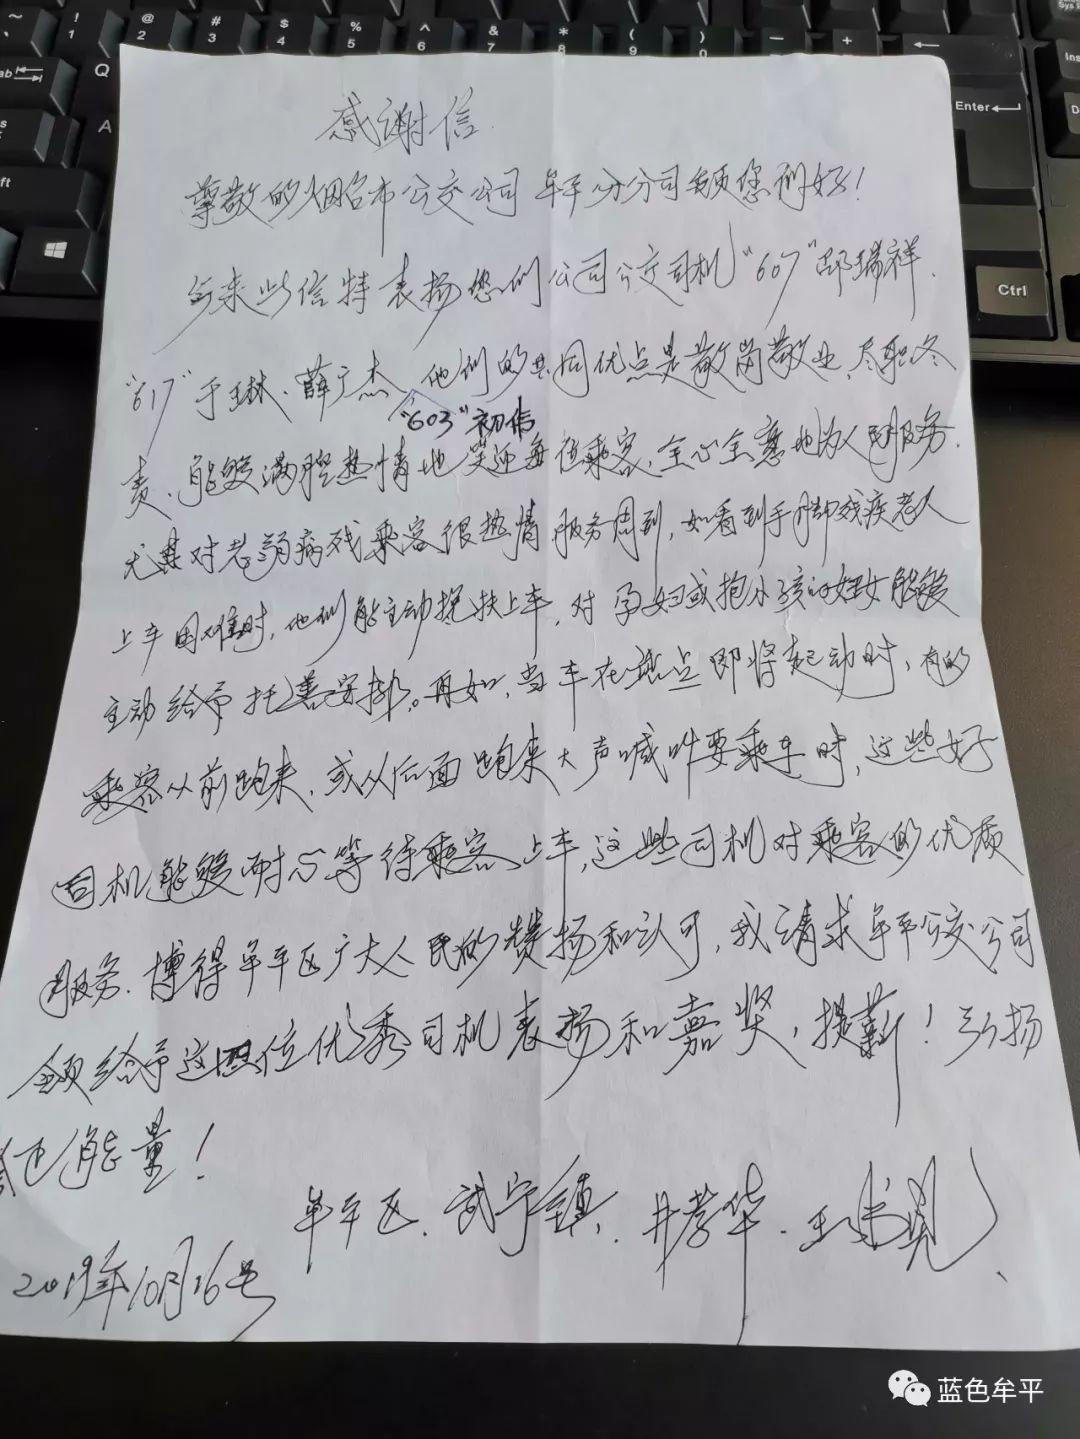 感谢信
尊敬的烟台市公交公司牟平分公司领您们好！
今来此信特表扬您们公司公交司机“607”邵瑞祥、
“617”于琳、薛广杰、他们的共同优点是敬岗敬业、尽职冬
“603”初信
责、能够满腔热情地笑迎每位乘客，全心全意地为人民服务．
尤其对老弱病残乘客很热情服务周到，如看到手脚残疾老人
上车困难时，他们能主动搀扶上车，对孕妇或抱小孩的妇女能够
主动给予托善安排。再如，当车在站点即将起动时，有的
乘客从前跑来，或从后面跑来大声喊叫要乘车时，这些好
司机能够耐心等待乘客上车，这些司机对乘客的优质
服务．博得牟平区广大人民的赞扬和认可，我请求牟平公交公司
领给予这四位优秀司机表扬和嘉奖，提薪！弘扬
正能量！
牟平区．武宁镇．井孝华．王
2019年10月16号
~ ! 1 @ 2 # 3 $ 4 % 5 ^ 6 & 7 * 8 ( 9 ) 0 — - + =
Q
A
Enter
Ctrl
蓝色牟平